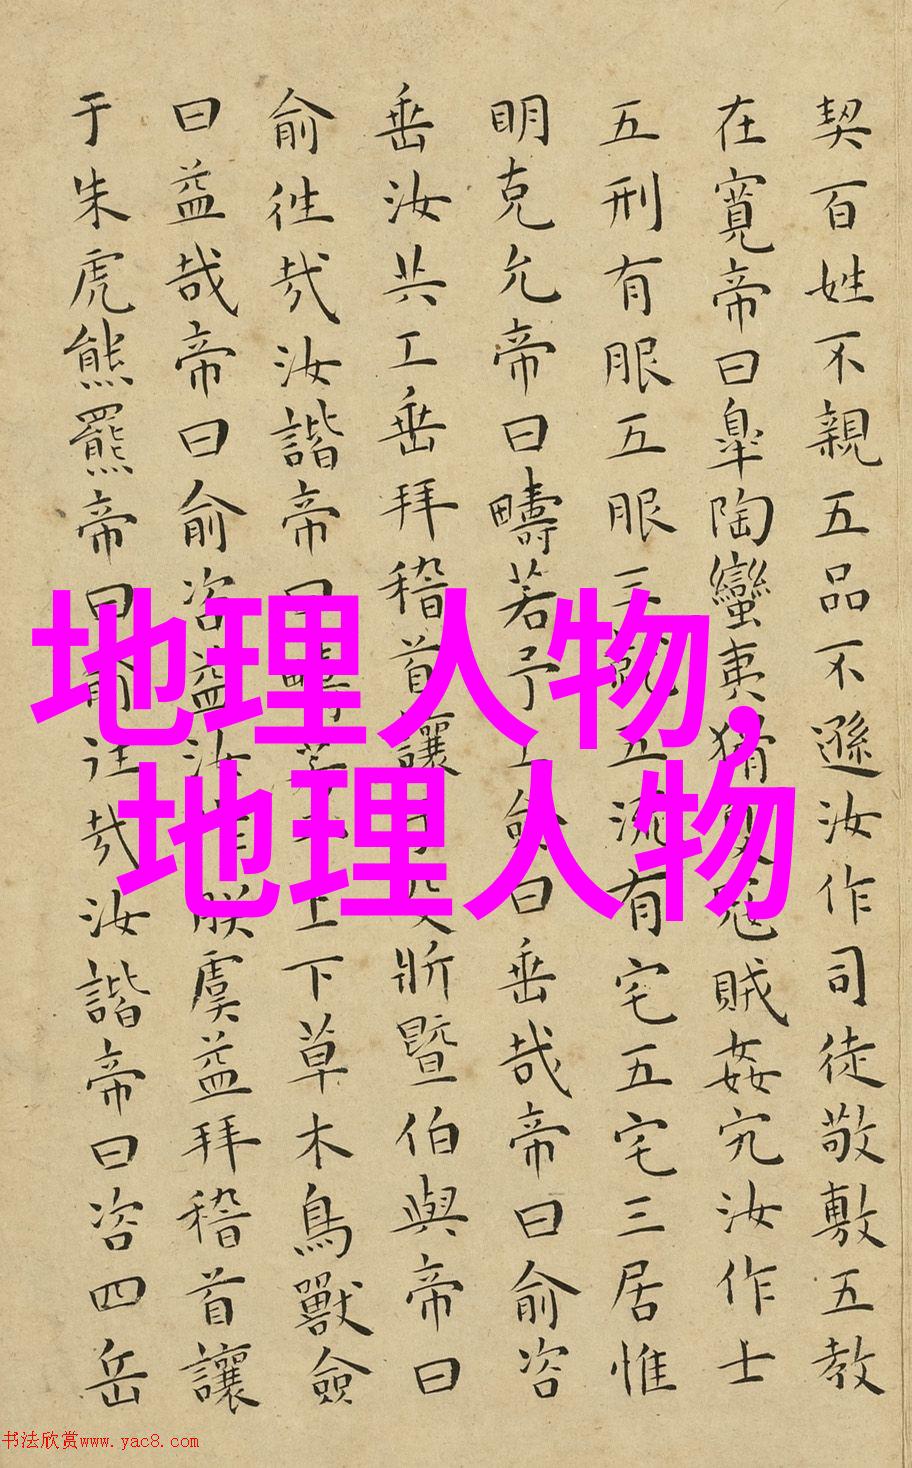 契百姓不親五品不遜汝作司徒敬敷五教
在寬帝曰皐陶蠻夷猾夏寇賊姦宄汝作士
五刑有服五服三就五流有宅五宅三居惟
明克允帝曰疇若予工僉曰垂哉帝曰俞咨
垂汝共工垂拜稽首讓于殳斨暨伯與帝曰
俞往哉汝諧帝曰疇若予上下草木鳥獸僉
曰益哉帝曰俞咨益汝作朕虞益拜稽首讓
于朱虎熊羆帝曰俞往哉汝諧帝曰咨四岳
地理人物,
地理人物
书法欣赏www.yac8.com